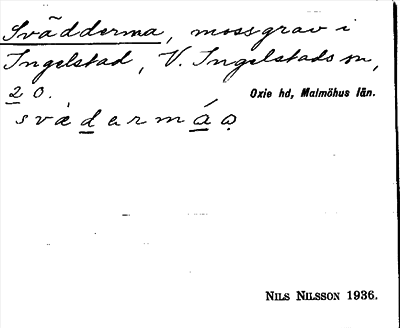 Svädderma, mossgrav i
Ingelstad, V. Ingelstads sn,
20. Oxie hd, Malmöhus län.
svädermáa
NILS NILSSON 1936.